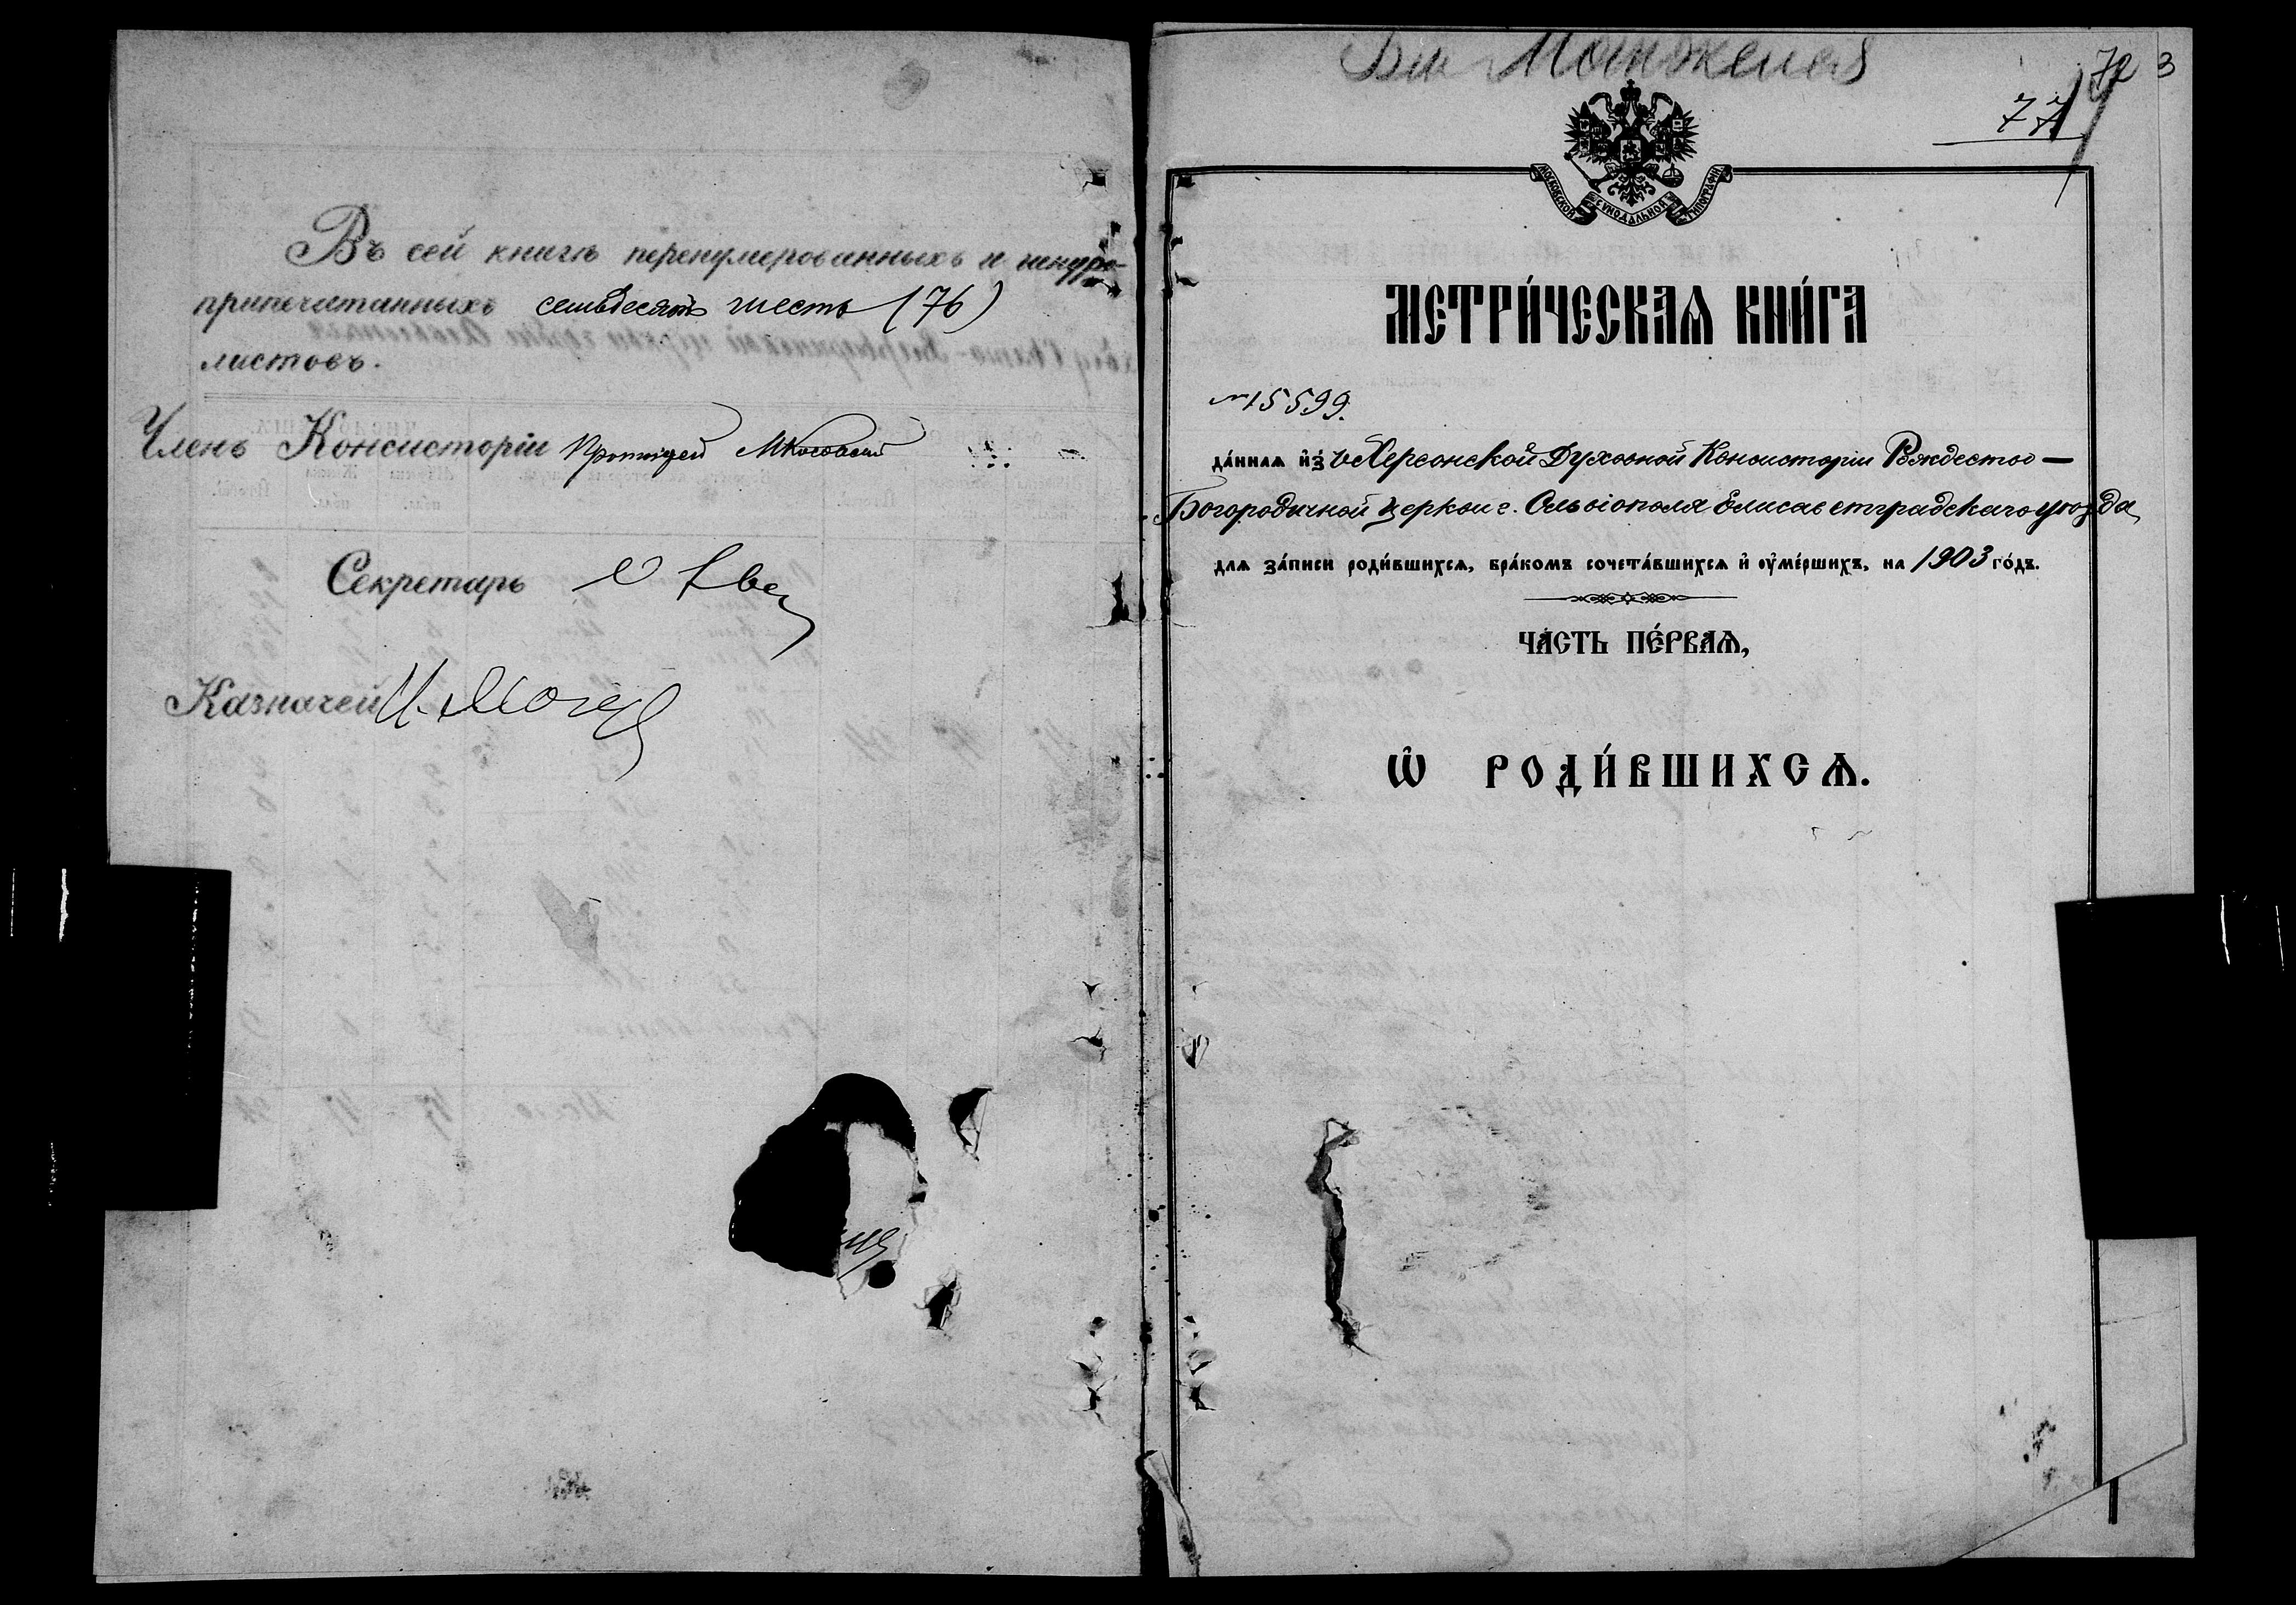 Въ сей книгѣ перенумерованныхъ и шнуро-
припечатанныхъ семьдесятъ шесть (76)
листовъ.
Членъ Консисторіи Протоіерей
Секретарь
Казначей
72 3
77
МОСКОВСКОЙ СѴНОДАЛЬНОЙ ТИПОГРАФІИ
МЕТРИ́ЧЕСКАѦ КНИ́ГА
№ 15599.
да́ннаѧ и҆з̾ Херсонской Духовной Консисторіи Рождество-
Богородичной церкви г. Ольвіополя Елисаветградскаго уѣзда
для за́писи роди́вшихсѧ, бра́комъ сочета́вшихсѧ и҆ ᲂу҆ме́ршихъ, на 1903 го́дъ.
ЧА́СТЬ ПЕ́РВАѦ,
Ѽ РОДИ́ВШИХСѦ.